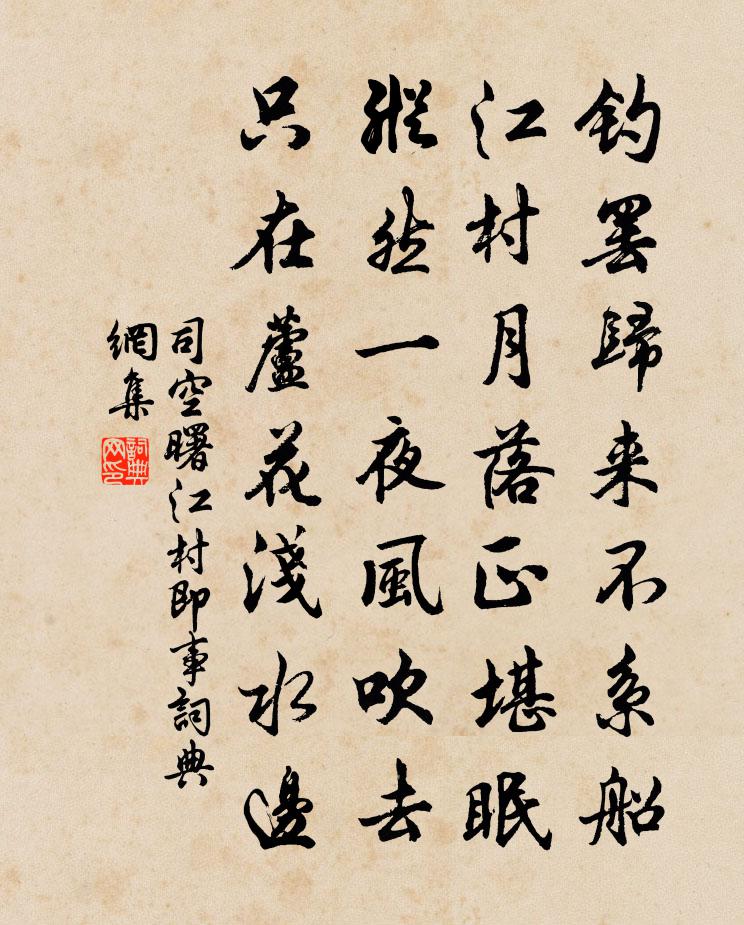 钓罢歸来不系船
江村月落正堪眠
縱然一夜風吹去
只在蘆花淺水邊
司空曙江村即事詞典
網集
詞典
网印